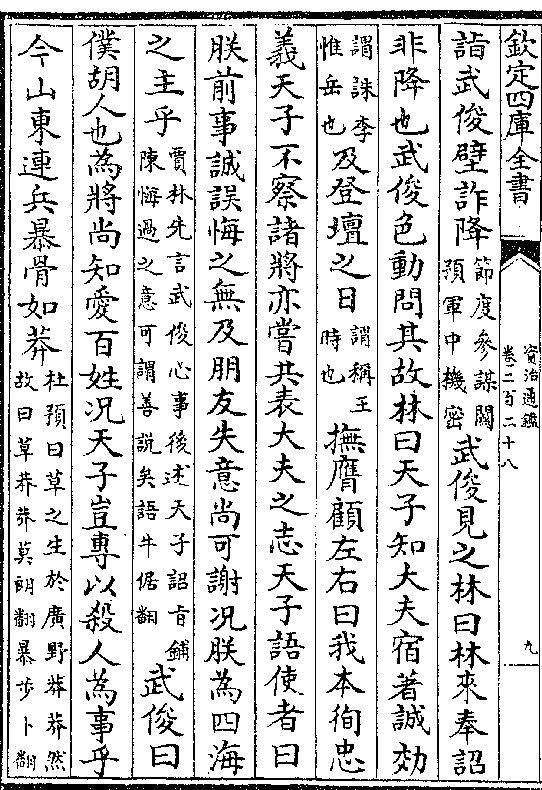 欽定四庫全書
資治通鑑
卷二百二十八
九
詣武俊壁詐降
節度參謀闗
預軍中機密
武俊見之林曰林來奉詔
非降也武俊色動問其故林曰天子知大夫宿著誠効
謂誅李
惟岳也
及登壇之日
謂稱王
時也
撫膺顧左右曰我本徇忠
義天子不察諸將亦嘗共表大夫之志天子語使者曰
朕前事誠誤悔之無及朋友失意尚可謝况朕為四海
之主乎
賈林先言武俊心事後述天子詔旨鋪
陳悔過之意可謂善說矣語牛倨翻
武俊曰
僕胡人也為將尚知愛百姓况天子豈專以殺人為事乎
今山東連兵暴骨如莽
杜預曰草之生於廣野莽莽然
故曰草莽莽莫朗翻暴步卜翻